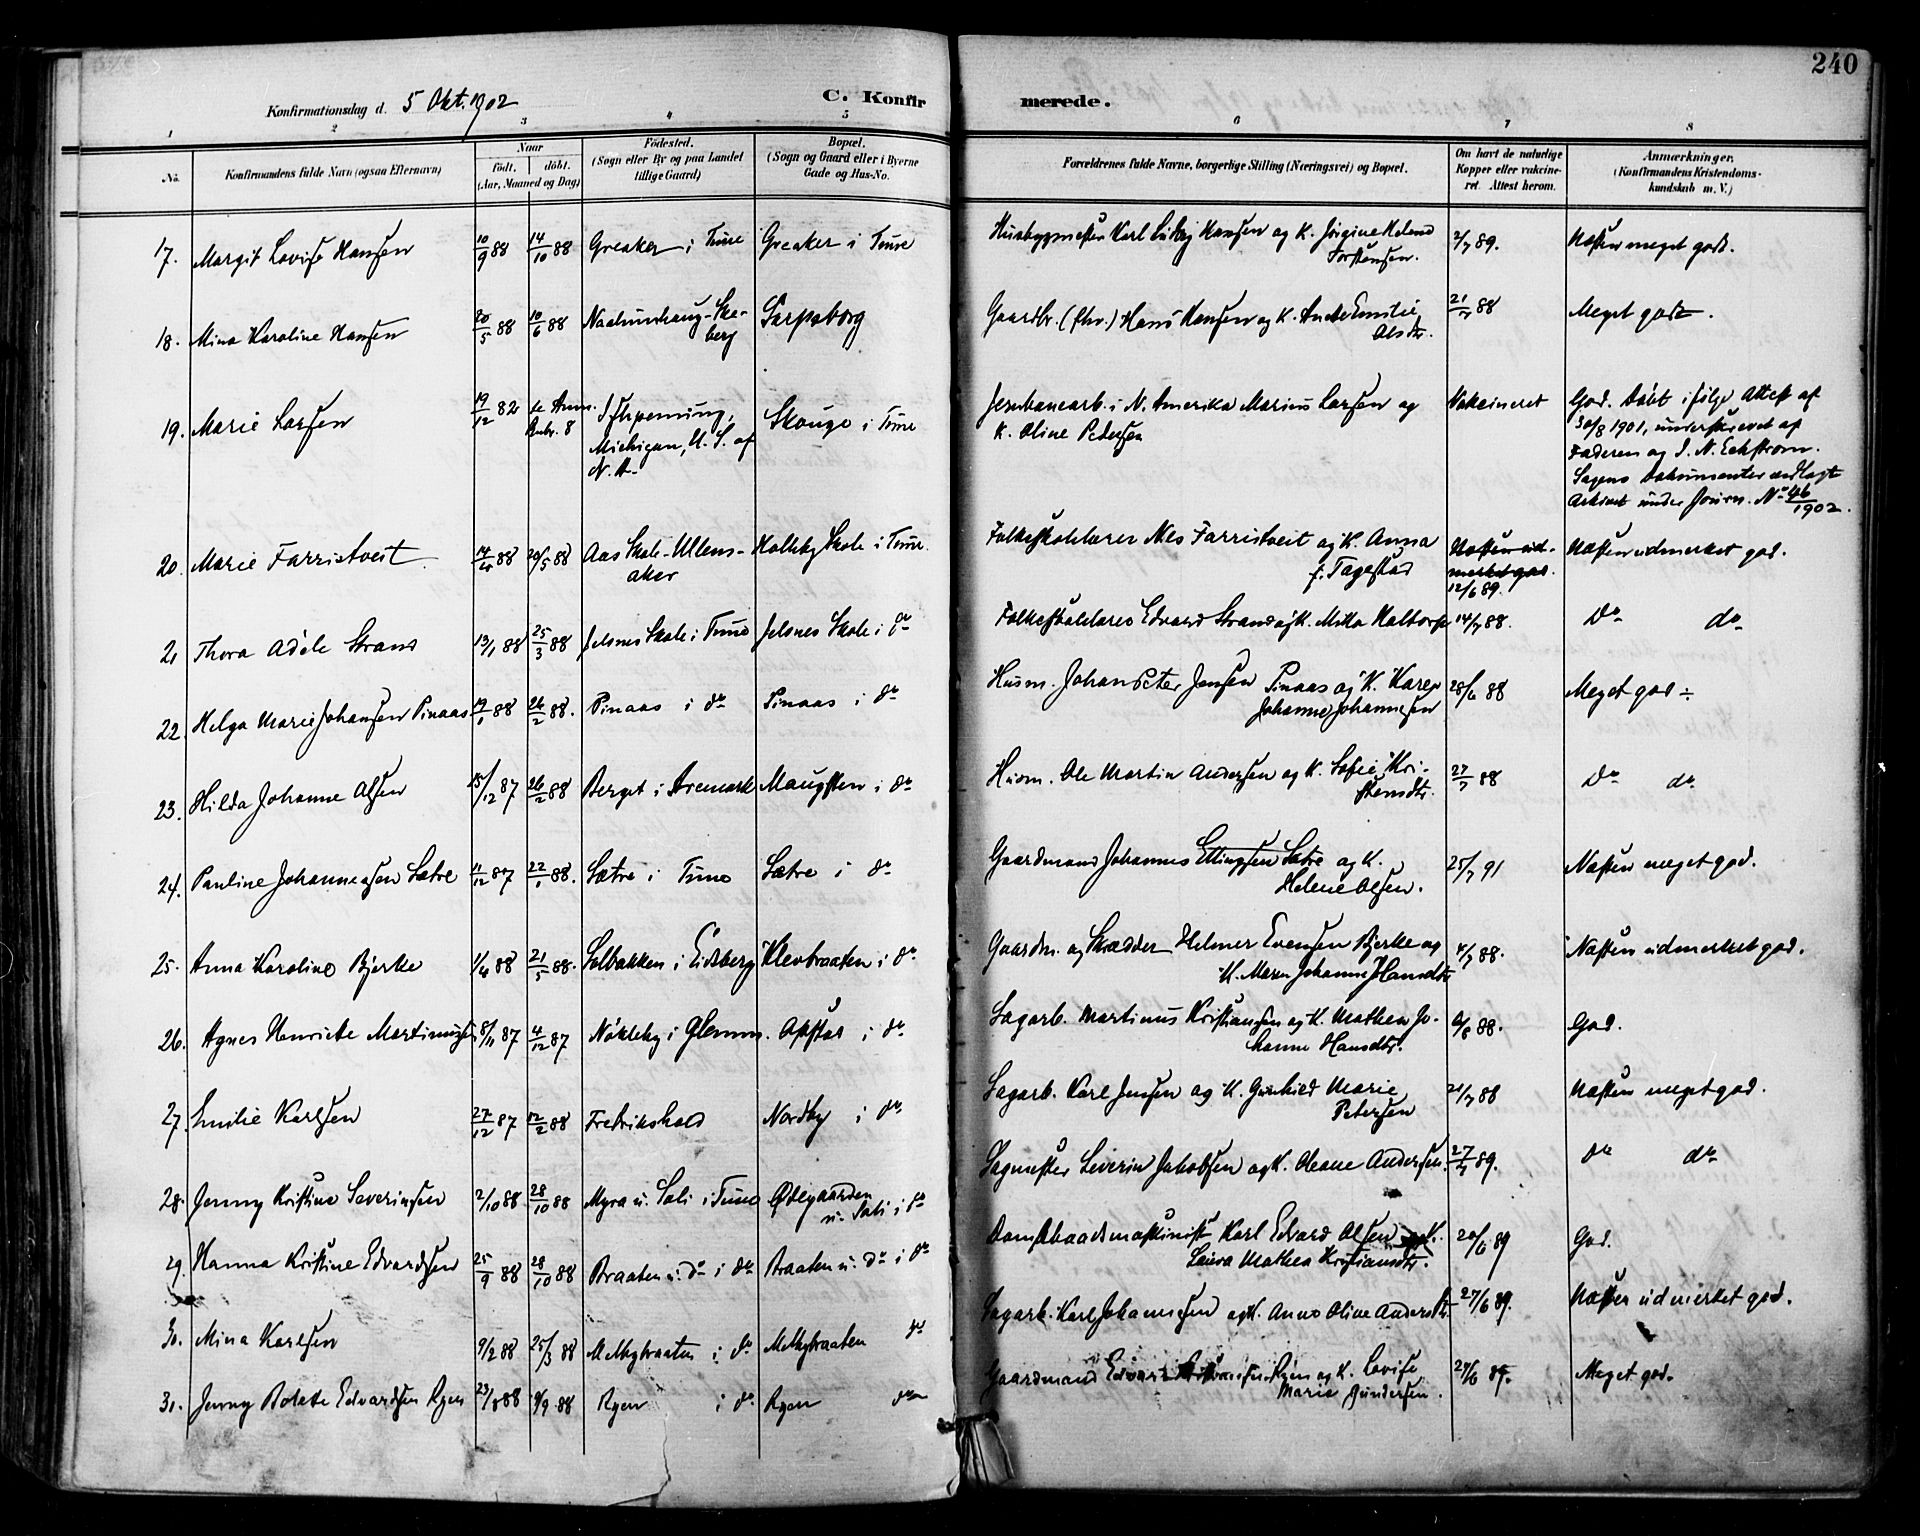 240
Konfirmationsdag d. 5 Okt. 1902
C. Konfirmerede.
1 2 3 4 5 6 7 8
No.
Konfirmandens fulde Navn (ogsaa Efternavn)
Naar
født. døbt.
(Aar, Maaned og Dag)
Fødested.
(Sogn eller By og paa Landet
tillige Gaard)
Bopæl.
(Sogn og Gaard eller i Byerne
Gade og Hus-No.
Forældrenes fulde Navne, borgerlige Stilling (Næringsvei) og Bopæl.
Om havt de naturlige
Kopper eller vakcine-
ret. Attest herom.
Anmærkninger.
(Konfirmandens Kristendoms-
kundskab m. V.)
17. Margit Lovise Hansen 10/9 88 14/10 88 Greaker i Tune Greaker i Tune Husbygmester Karl Hansen og K. Jørgine Helene Torstensen. 2/7 89. Næsten meget god.
18. Mina Karoline Hansen 20/5 88 10/6 88 Skeberg Sarpsborg Gaardbr. (fhv.) Hans Hansen og K. Emilie Olsdtr. 21/7 88 Meget god.
19. Marie Larsen 19/12 82 se Anm. Rubr. 8 Ishpeming, Michigan, U. S. af N. A. Skouge i Tune Jernbanearb. i N. Amerika Marius Larsen og K. Oline Pedersen Vakcineret God. Døbt ifølge Attest af
30/8 1901, underskrevet af
Faderen og J. N. Eckstrøm.
Sagens Dokumenter vedlagt
Arkivet under Journ. No 46/1902.
20. Marie Farristveit 14/4 88 20/5 88 Aas Skole - Ullensaker Holleby Skole i Tune. Folkeskolelærer Nils Farristveit og K. Anna f. Tagestad Næsten udmerket god. 12/6 89. Næsten udmerket god.
21 Thora Adéle Strand 13/1 88 25/3 88 Jelsnes Skole i Tune Jelsnes Skole i do Folkeskolelærer Edvard Strand og K. Mella Haltorp 14/7 88. do do
22. Helga Marie Johansen Pinaas 19/1 88 26/2 88. Pinaas i do Pinaas i do Husm. Johan Peter Jensen Pinaas og K. Karen Johanne Johannesen 28/6 88 Meget god ÷
23. Hilda Johanne Olsen 15/12 87 26/2 88 Berget i Aremark Maugsten i do Husm. Ole Martin Andersen og K. Sofie Kristensdtr. 27/7 88 do do
24. Pauline Johannessen Sætre 11/12 87 22/1 88. Sætre i Tune Sætre i do Gaardmand Johannes Ellingsen Sætre og K. Helene Olsen. 25/7 91 Næsten meget god.
25. Anna Karoline Bjerke 1/4 88 21/5 88. Solbakken i Eidsberg Klevbraaten i do Gaardm. og Skrædder Helmer Evensen Bjerke og K. Maren Johanne Hansdtr 4/7 88. Næsten udmerket god.
26. Agnes Henriette Martinusen 8/11 87 4/12 87 Nøkleby i Glemm. Opstad i do Sagarb. Martinus Kristiansen og K. Mathea Johanne Hansdtr. 6/8 88. God.
27. Emilie Karlsen 27/12 87 12/2 88 Fredrikshald Nordby i do Sagarb. Karl Jensen og K. Gunhild Marie Petersen 21/7 88 Næsten meget god.
28. Jenny Kristine Severinsen 2/10 88 28/10 88 Myra u. Soli i Tune Ødegaarden u. Soli i do Sagmester Severin Jakobsen og K. Oleane Andersen. 27/7 89. do do
29. Hanna Kristine Edvardsen 25/9 88 28/10 88 Braaten u. do i do Braaten u. do i do Dampbaadsmaskinist Karl Edvard Olsen og K. Laura Mathea Kristiansdtr. 20/6 89 God.
30. Mina Karlsen 9/2 88 25/3 88 Melbybraaten i do Melbybraaten do Sagarb. Karl Johannesen og K. Anne Oline Andersdtr 27/6 89. Næsten udmerket god.
31. Jenny Bolette Edvardsen Ryen 23/8 88 9/9 88 Ryen i do Ryen do Gaardmand Edvard Ryen og K. Lovise Marie Gundersen. 27/6 89. Meget god.